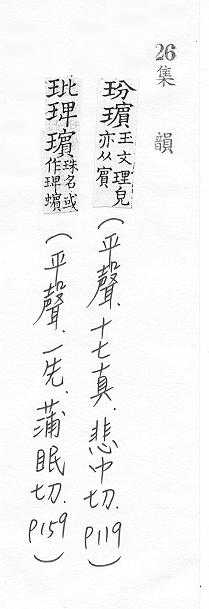 26 集韻
玢璸玉文理皃亦从賓(平聲.十七真.悲巾切.P119)
玭琕璸珠名或作琕蠙(平聲.一先.蒲眠切.P159)